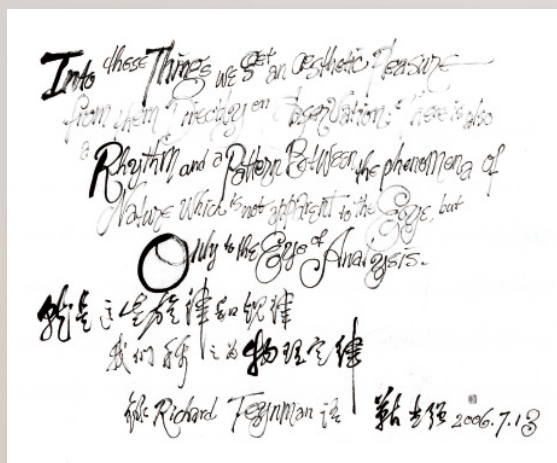 Into these Things we get an aesthetic Pleasure
from them Directly on observation, there is also
a Rhythm and a Pattern Between the phenomena of
Nature which is not apparent to the Eye, but
Only to the Eye of Analysis.
就是这些旋律和规律
我们称之为物理定律
录 Richard Feynman 语 2006.7.13